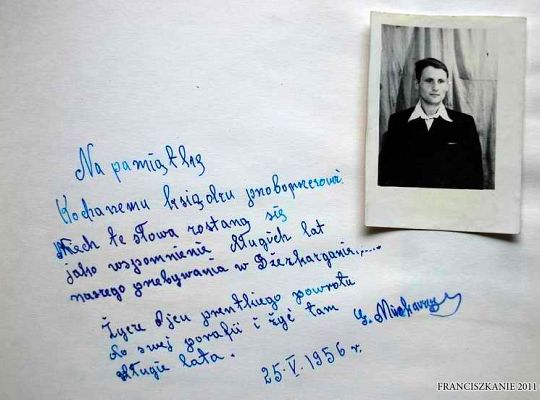 Na pamiątkę
Kochanemu księdzu proboszczowi.
Niech te słowa zostaną się
jako wspomnienie długich lat
naszego przebywania w Dżezkazganie......
Życzę Ojcu prentkiego powrotu
do swej parafii i żyć tam
długie lata.
25.V.1956 r.
FRANCISZKANIE 2011